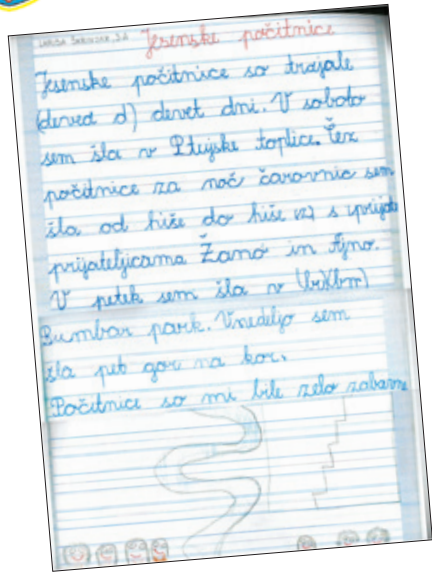 Jesenske počitnice
Jesenske počitnice so trajale
(deved d) devet dni. V soboto
sem šla v Ptujske toplice. Čez
počitnice za noč čarovnic sem
šla od hiše do hiše s
prijateljicama Žano in Ajno.
V petek sem šla v
Bumbar park. Vnedeljo sem
šla pet gor na kor.
Počitnice so mi bile zelo zabavne